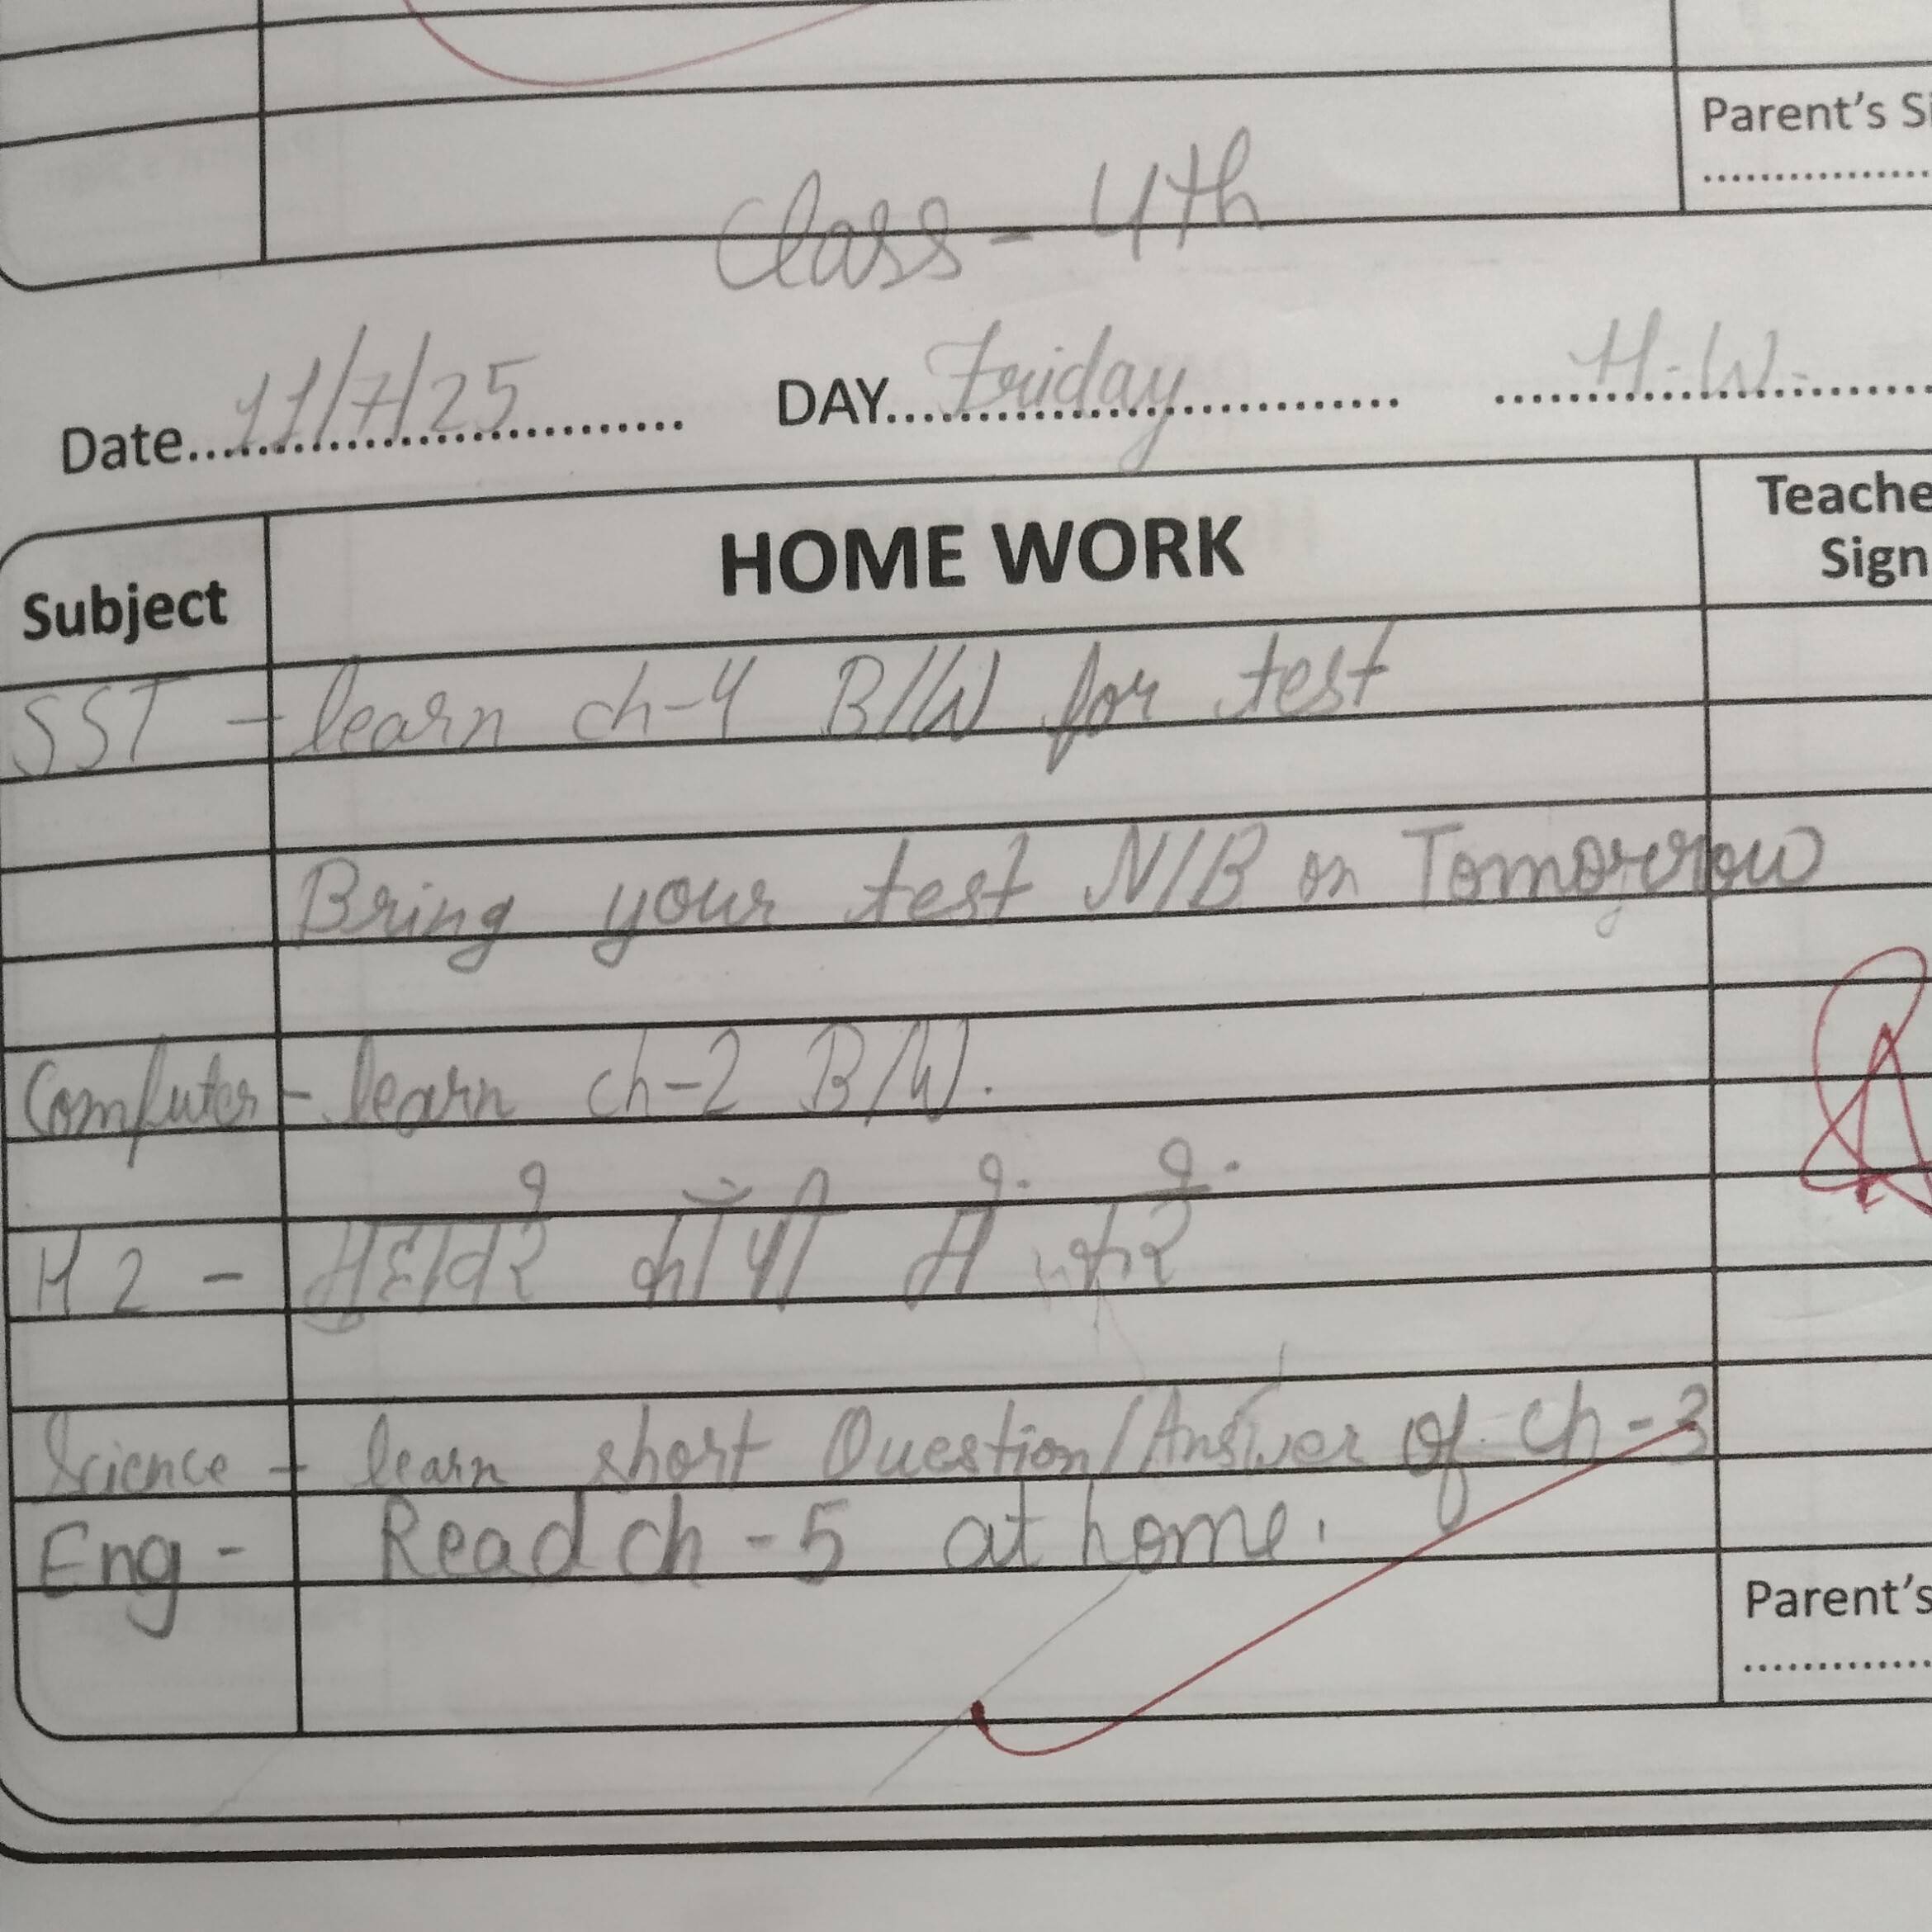 Parent's Si
Class - 4th
Date 11/7/25 DAY Friday H.W.
Subject HOME WORK Teache Sign
SST - learn ch-4 B/W for test
Bring your test N/B on Tomorrow
Computer - learn ch-2 B/W.
H2 - मुहावरे कॉपी में करें
Science - learn short Question/Answer of ch-3
Eng - Read ch-5 at home.
Parent's